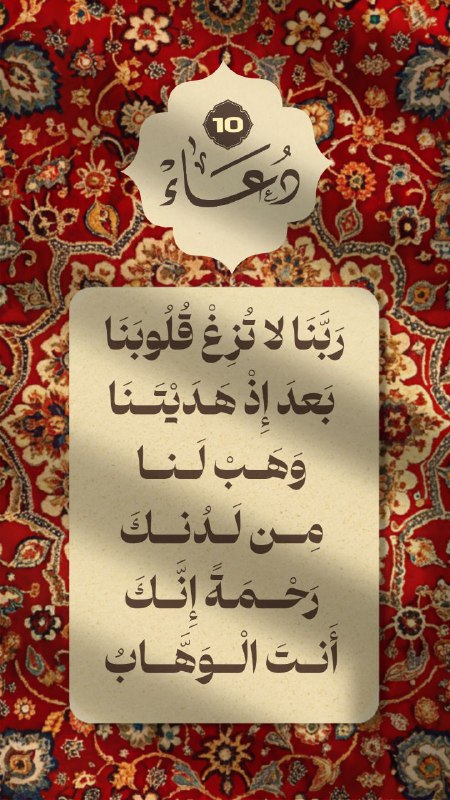 10
دُعَاءْ
رَبَّنَا لا تُزِغْ قُلُوبَنَا
بَعدَ إِذْ هَدَيْتَـنَا
وَهَـبْ لَـنـا
مِـن لَـدُنـكَ
رَحْـمَـةً إِنَّـكَ
أَنـتَ الْـوَهَّـابُ